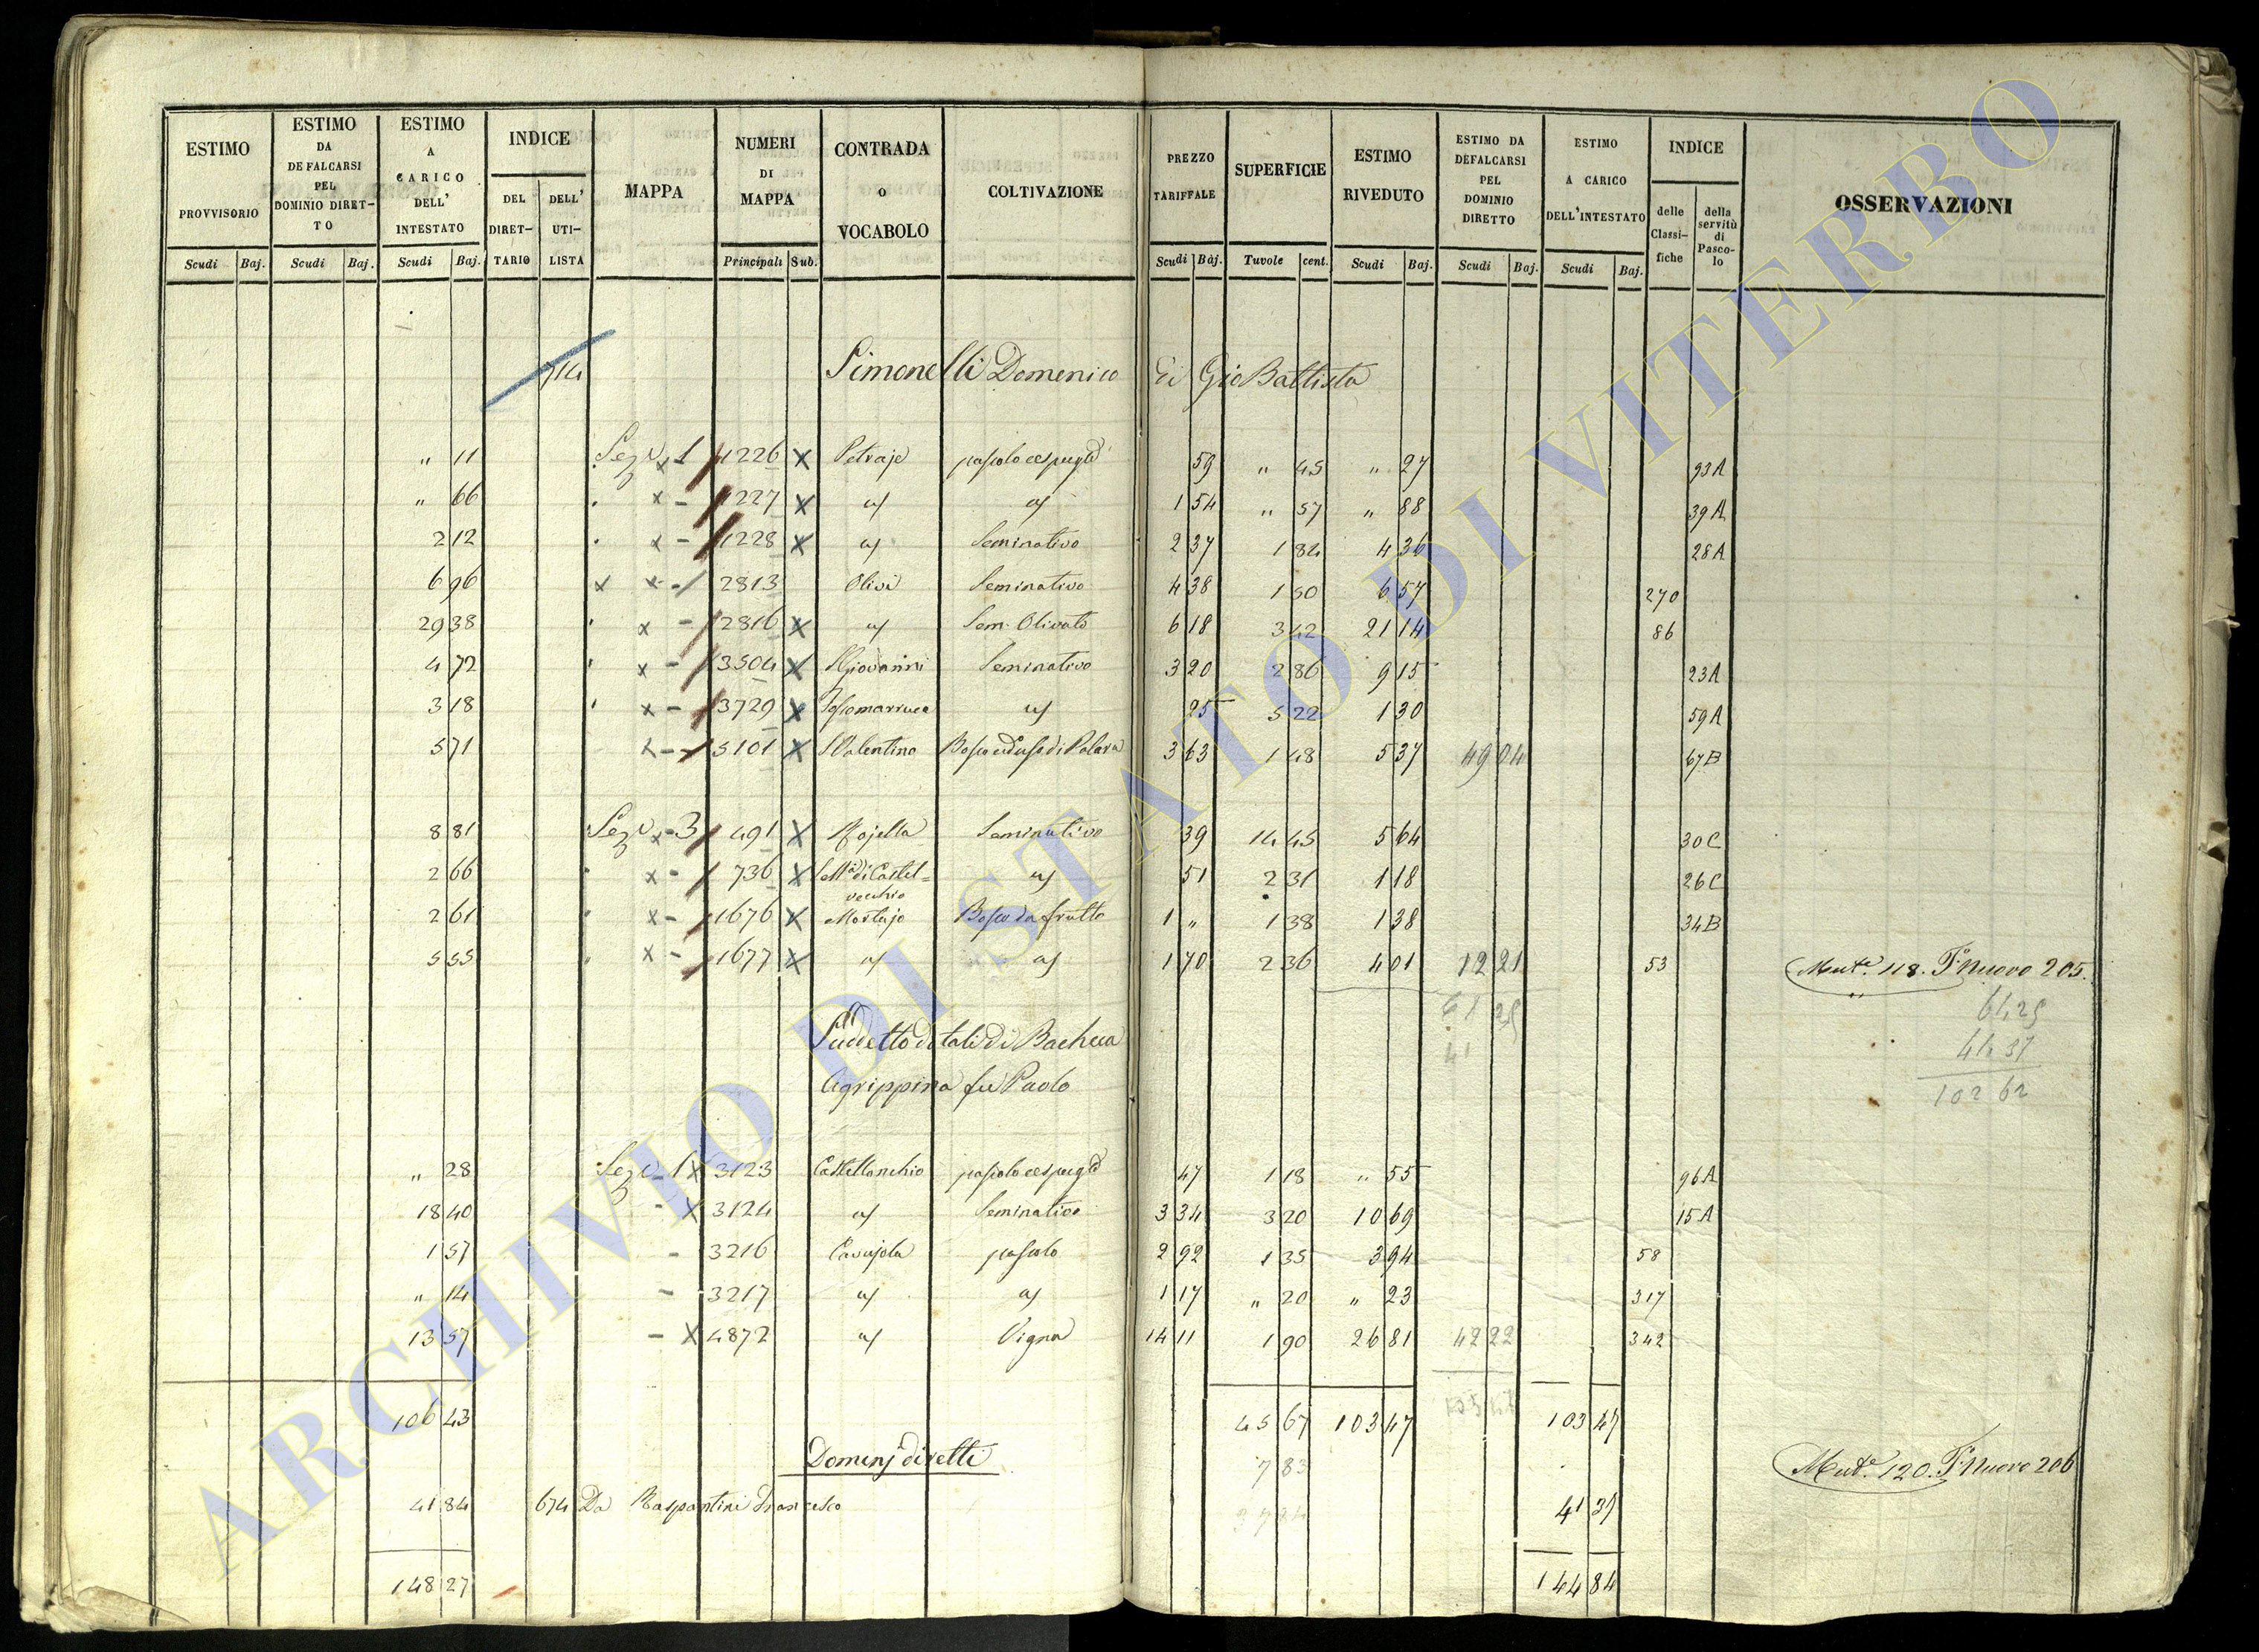 ESTIMO PROVVISORIO | ESTIMO DA DEFALCARSI PEL DOMINIO DIRET-TO | ESTIMO A CARICO DELL' INTESTATO | INDICE DEL DIRET-TARIO | DELL' UTI-LISTA | MAPPA | NUMERI DI MAPPA | CONTRADA O VOCABOLO | COLTIVAZIONE | PREZZO TARIFFALE | SUPERFICIE | ESTIMO RIVEDUTO | ESTIMO DA DEFALCARSI PEL DOMINIO DIRETTO | ESTIMO A CARICO DELL'INTESTATO | INDICE delle Classi-fiche | della servitù di Pasco-lo | OSSERVAZIONI
Scudi | Baj. | Scudi | Baj. | Scudi | Baj. | Principali | Sub. | Scudi | Baj. | Tuvole | cent. | Scudi | Baj. | Scudi | Baj. | Scudi | Baj.
714 Simonelli Domenico di Gio Battista
" 11 Sez. 1 1226 x Petraje pascolo cespugl. 59 " 45 " 27 93A
" 66 x - 1227 x 1 54 " 57 " 88 39A
2 12 x - 1228 x Seminativo 2 37 1 84 4 36 28A
6 96 x x - 2813 Olivi Seminativo 4 38 1 50 6 57 270
29 38 x - 2816 x Sem. Olivato 6 18 3 42 21 14 86
4 72 x - 3504 x S Giovanni Seminativo 3 20 2 86 9 15 23A
3 18 x - 3729 x 25 5 22 1 30 59A
5 71 x - 5101 x S Valentino 3 63 1 48 5 37 49 04 67B
8 81 Sez. x - 3 491 x Mojella Seminativo 39 14 45 5 64 30C
2 66 x - 736 x S Ma di Castel=
vecchio 51 2 31 1 18 26C
2 61 x - 1676 x Mortajo Bosco da frutto 1 " 1 38 1 38 34B
5 55 x - 1677 x 1 70 2 36 4 01 12 21 53 Mut.e 118. F. Nuovo 205.
61 25 61,25
41 41,37
Suddetto dotali di Bacheca 102 62
Agrippina fu Paolo
" 28 Sez. 1 x 3123 Castellonchio pascolo cespugl. 47 1 18 " 55 96A
18 40 - x 3124 Seminativo 3 34 3 20 10 69 15A
1 57 - 3216 Cavajola pascolo 2 92 1 35 3 94 58
" 14 - 3217 1 17 " 20 " 23 317
13 57 - x 4872 Vigna 14 11 1 90 26 81 42 22 342
106 43 45 67 103 47 103 47
Dominj diretti 7 83 Mut.e 120. F. Nuovo 206
41 84 674 Da Raspantini Francesco 41 37
148 27 144 84
ARCHIVIO DI STATO DI VITERBO